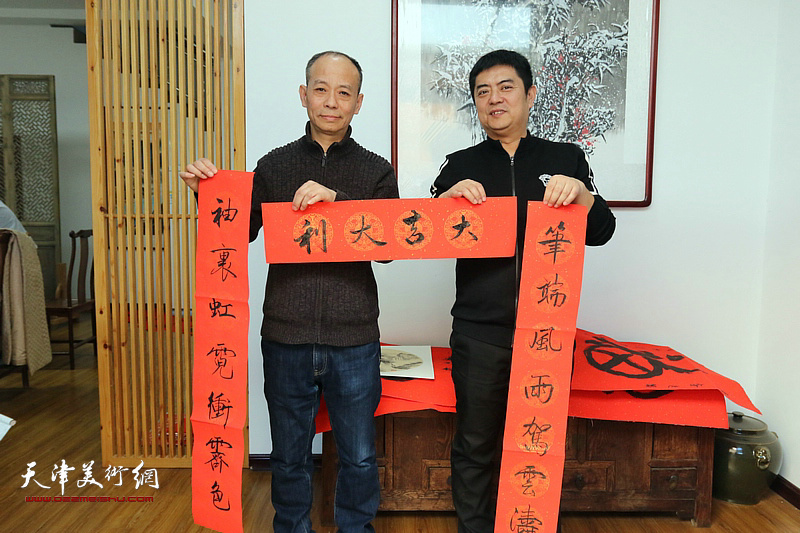 筆端風雨駕雲濤
大吉大利
袖裏虹霓衝霽色
天津美術網
www.022meishu.com